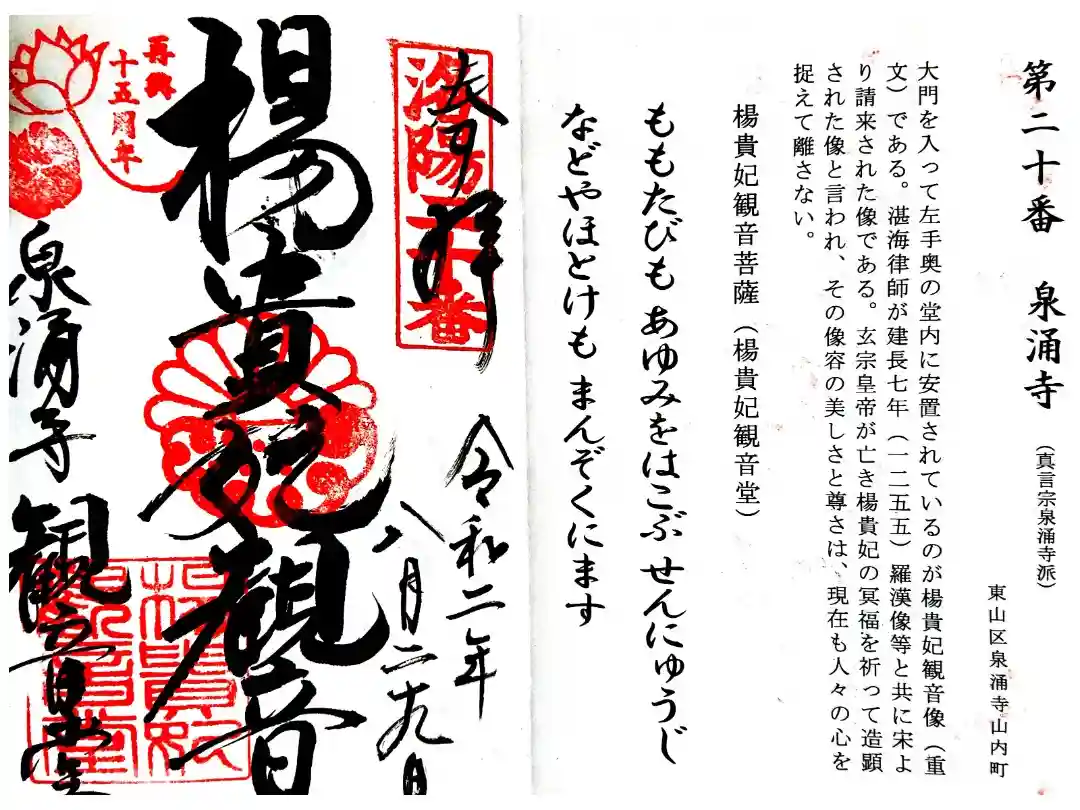 第二十番 泉涌寺 (真言宗泉涌寺派)
東山区泉涌寺山内町
大門を入って左手奥の堂内に安置されているのが楊貴妃観音像（重
文）である。湛海律師が建長七年（一二五五）羅漢像等と共に宋よ
り請来された像である。玄宗皇帝が亡き楊貴妃の冥福を祈って造顕
された像と言われ、その像容の美しさと尊さは、現在も人々の心を
捉えて離さない。
楊貴妃観音菩薩（楊貴妃観音堂）
ももたびも あゆみをはこぶ せんにゅうじ
などやほとけも まんぞくにます
奉拝
洛陽二十番
令和二年
八月二十九日
楊貴妃観音
再興
十五周年
泉涌寺 観音堂